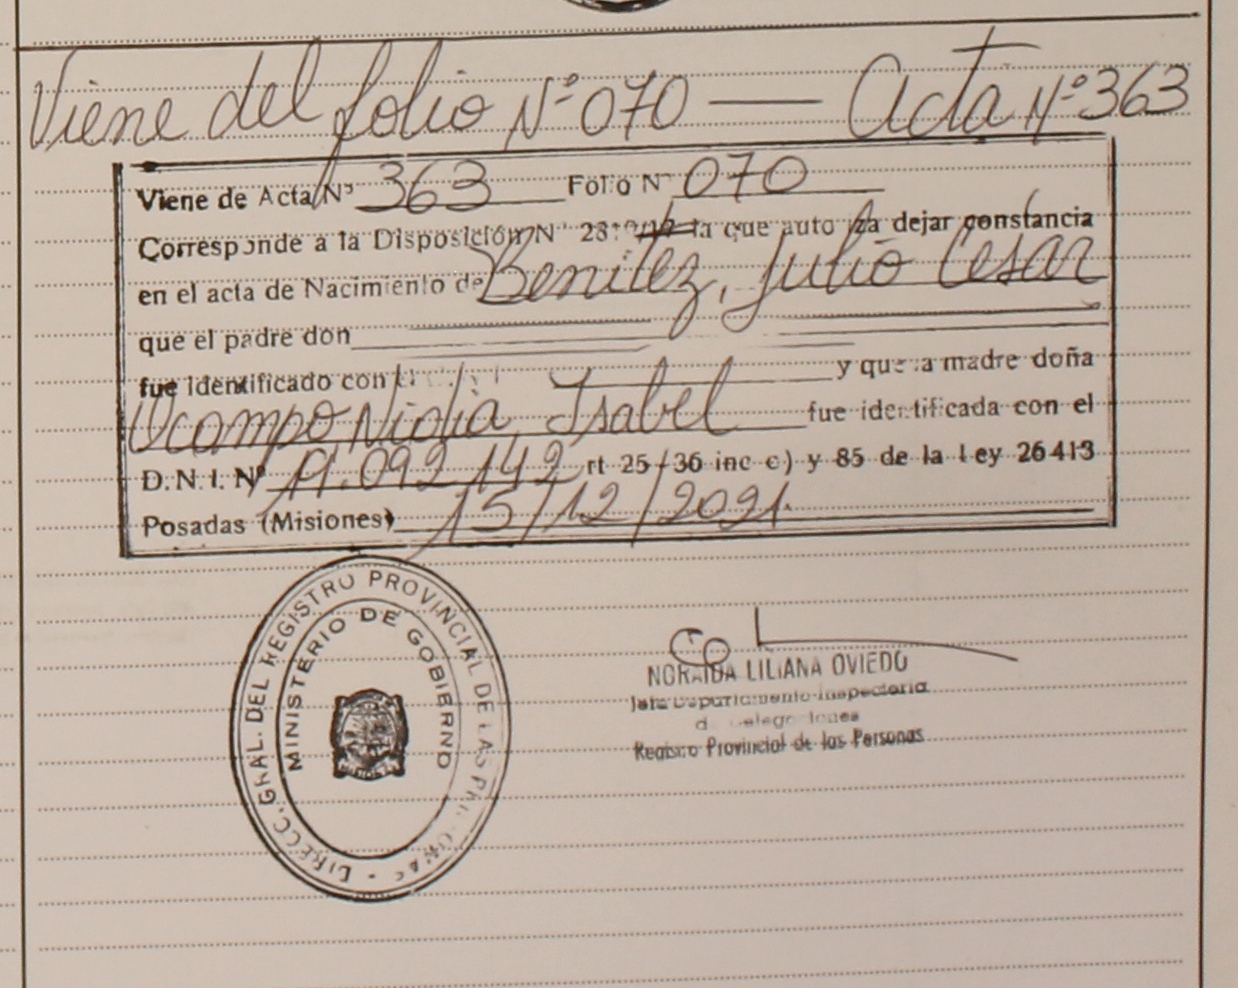 Viene del folio Nº 070 — Acta Nº 363
Viene de Acta Nº 363 Folio Nº 070
Corresponde a la Disposición Nº la que autoriza dejar constancia
en el acta de Nacimiento de Benitez, Julio Cesar
que el padre don
fue identificado con y que la madre doña
Ocampo, Nidia Isabel fue identificada con el
D.N.I. Nº 11.092.142 rt 25/36 inc c) y 85 de la Ley 26413
Posadas (Misiones) 15/12/2021.
DIRECC. GRAL. DEL REGISTRO PROVINCIAL DE LAS
MINISTERIO DE GOBIERNO
NORAIDA LILIANA OVIEDO
Jefa Departamento Inspectoria
de Delegaciones
Registro Provincial de las Personas